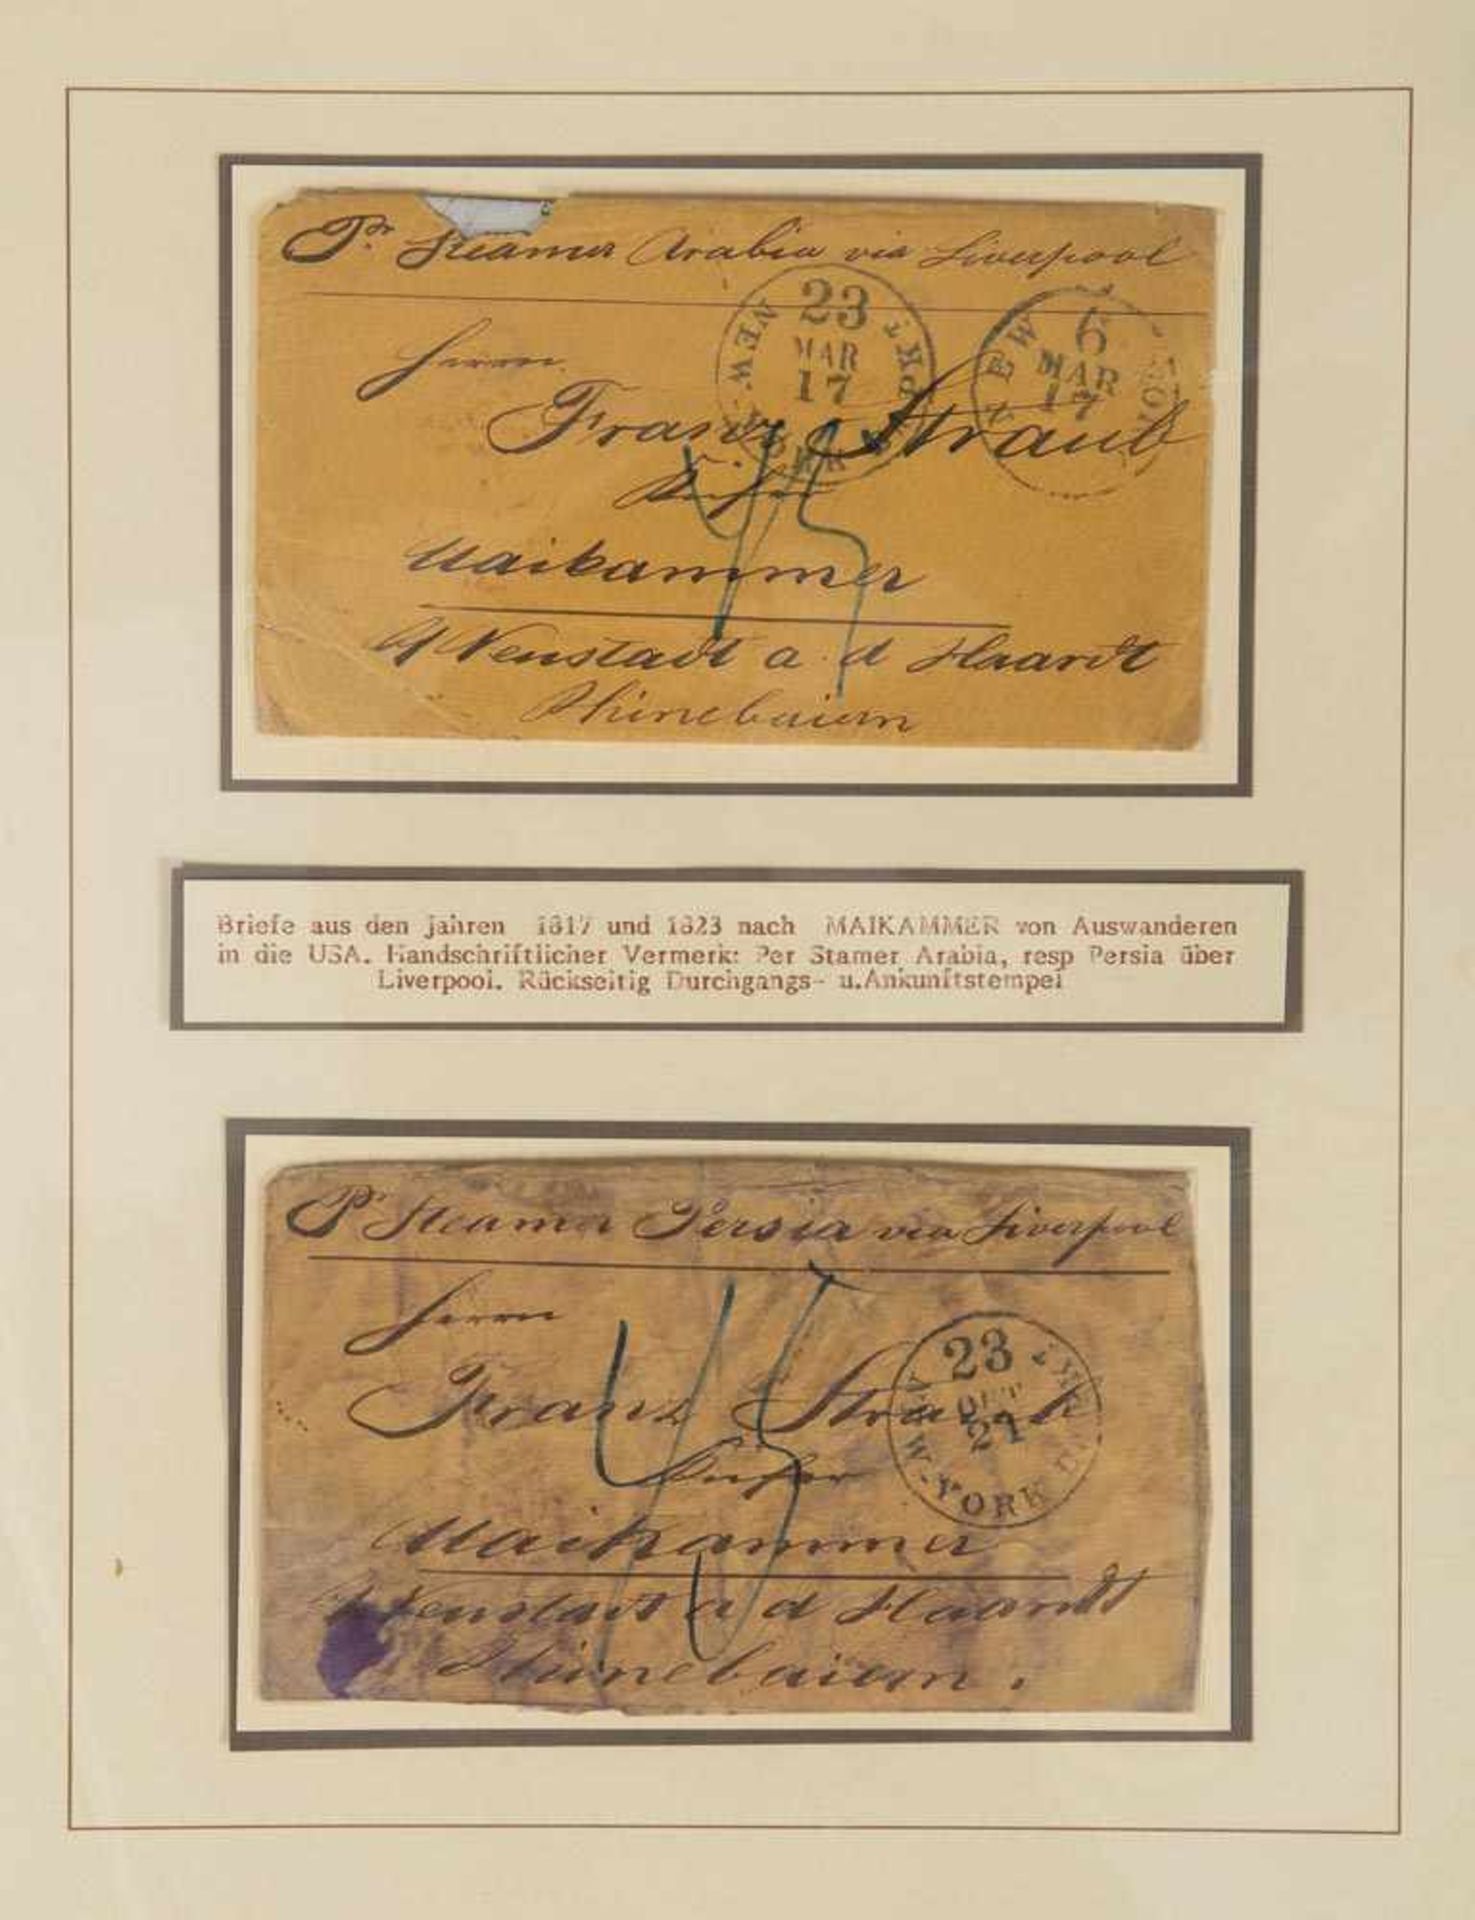 Pr Steamer Arabia via Liverpool
NEW-YORK
23
MAR
17
NEW YOR
6
MAR
17
Herrn
Franz Straub
Küfer
45
Maikammer
Neustadt a. d Haardt
Rheinebaiern
Briefe aus den Jahren 1817 und 1823 nach MAIKAMMER von Auswanderen
in die USA. Handschriftlicher Vermerk: Per Stamer Arabia, resp Persia über
Liverpool. Rückseitig Durchgangs- u.Ankunftstempel
Pr Steamer Persia via Liverpool
Herrn
NEW-YORK
23
21
Franz Straub
Küfer
45
Maikammer
Neustadt a d Haardt
Rheinebaiern.